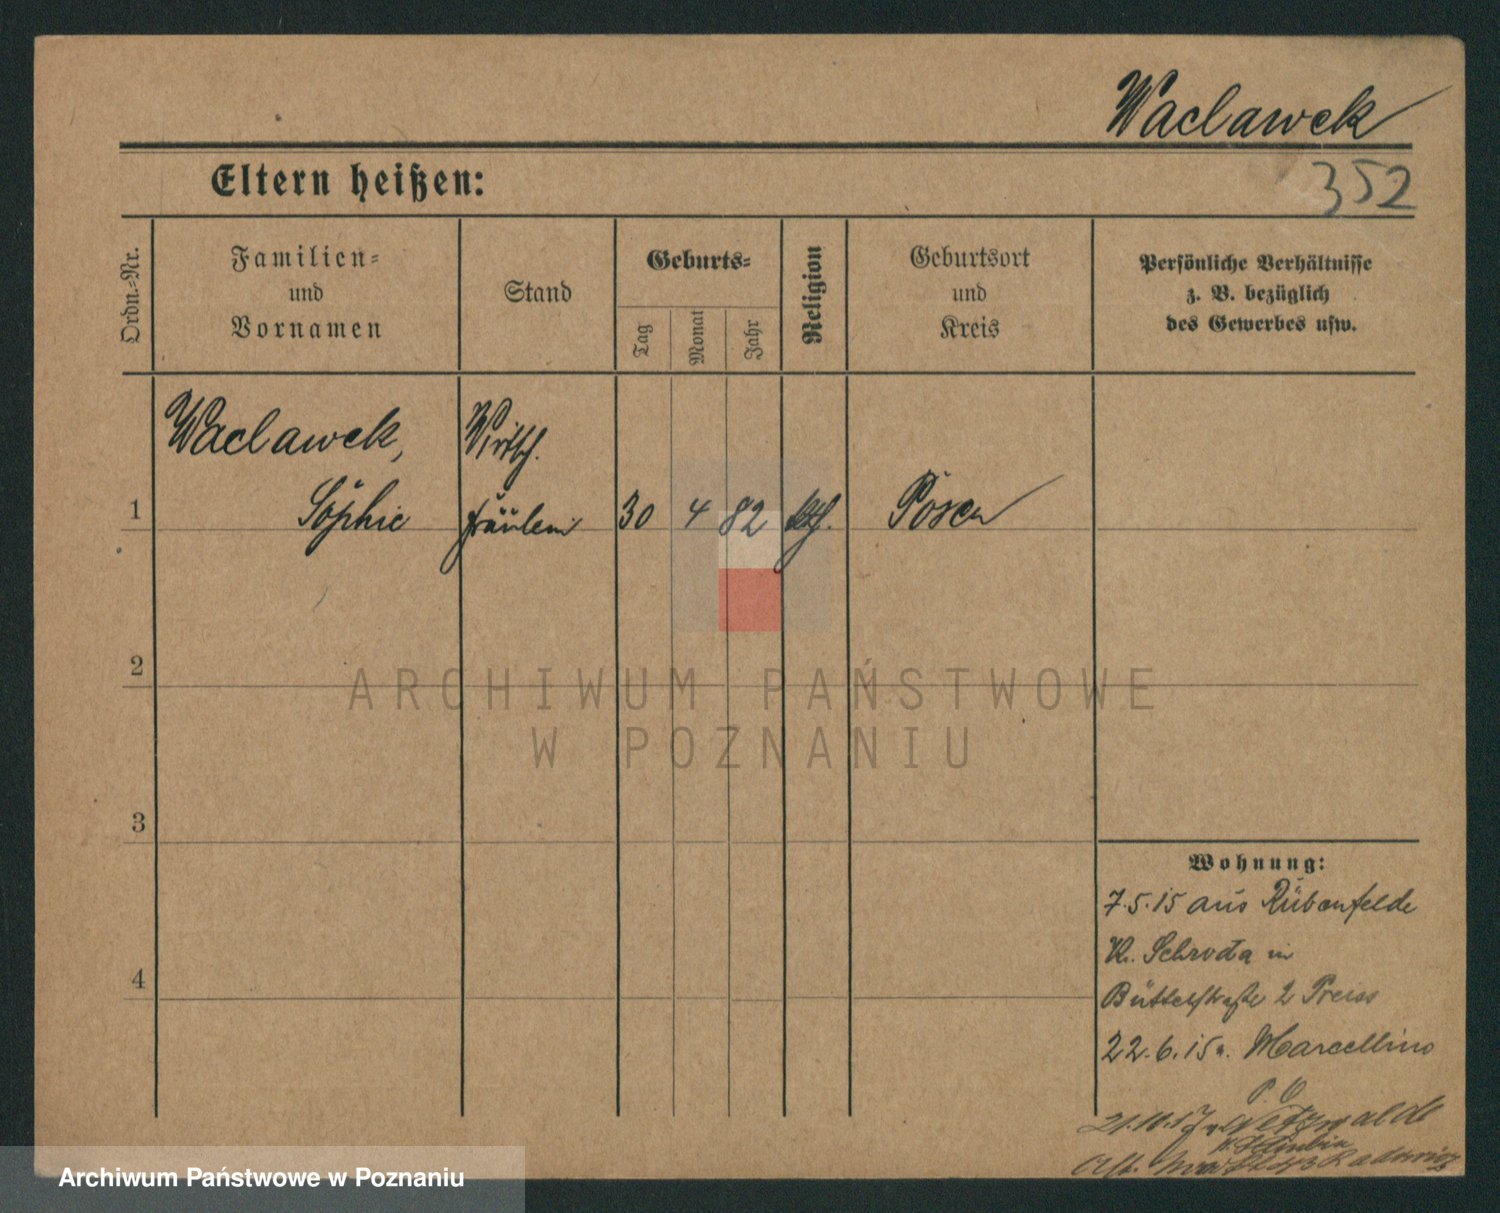 Waclawek
352
Eltern heißen:
Ordn.-Nr.
Familien-
und
Vornamen
Stand
Geburts-
Tag
Monat
Jahr
Religion
Geburtsort
und
Kreis
Persönliche Verhältnisse
z. B. bezüglich
des Gewerbes usw.
Waclawek, Wirtsch.
1 Sophie fräulein 30 4 82 kth. Posen
2
3
4
ARCHIWUM PAŃSTWOWE
W POZNANIU
Wohnung:
7.5.15 aus Rübenfelde
Kr. Schroda in
Büttelstraße 2 Preiss
22.6.15 n. Marcellino
21.10.17 n. Netzwalde
Archiwum Państwowe w Poznaniu